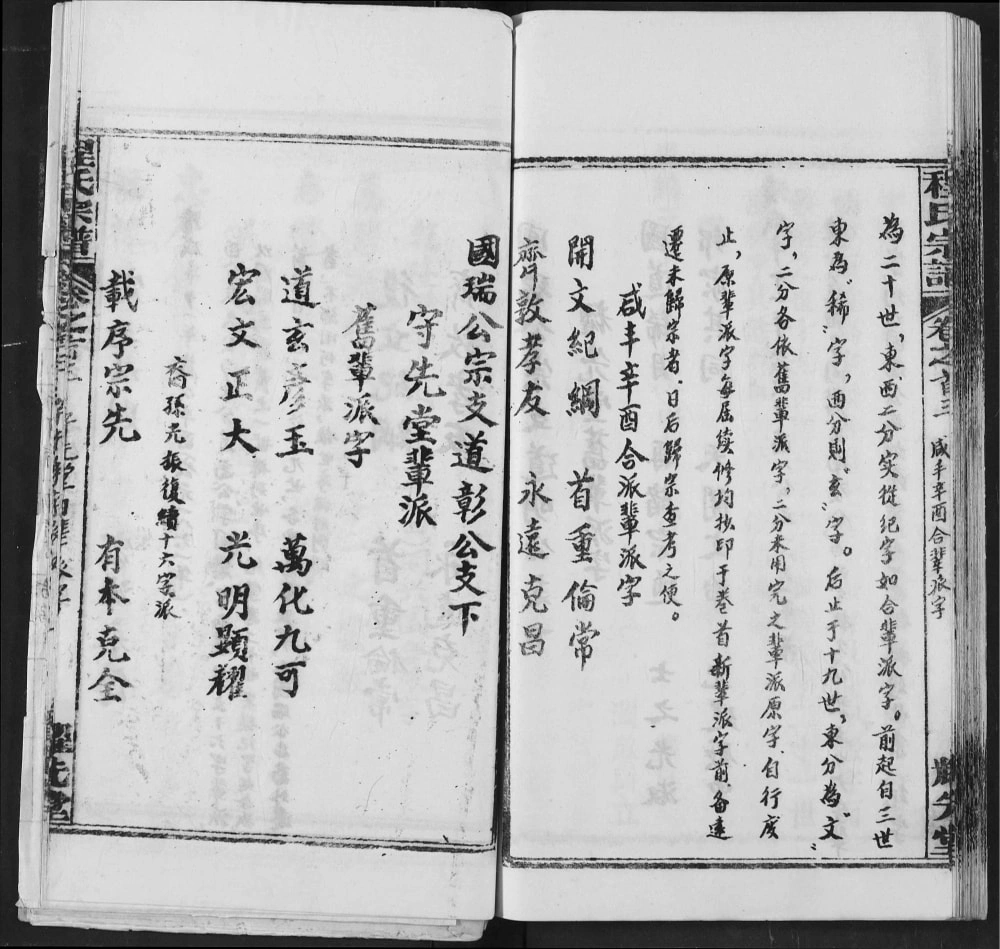 程氏宗譜 卷之首三 咸丰辛酉合輩派字
為二十世，東西二分实從纪字如合輩派字。前起自三世
東為"稀"字，西分則"玄"字。后止于十九世，東分為"文"
字，二分各依舊輩派字，二分未用完之輩派原字，自行废
止，原輩派字每届续修均抄印于卷首新輩派字前，备遠
遷未歸宗者，日后歸宗查考之便。
咸丰辛酉合派輩派字
開文紀綱 首重倫常
齊敦孝友 永遠克昌
國瑞公宗支道彰公支下
守先堂輩派
舊輩派字
道玄彥玉 萬化九可
宏文正大 光明顯耀
裔孫光振復續十六字派
載序宗先 有本克全
程氏宗譜 卷之首三